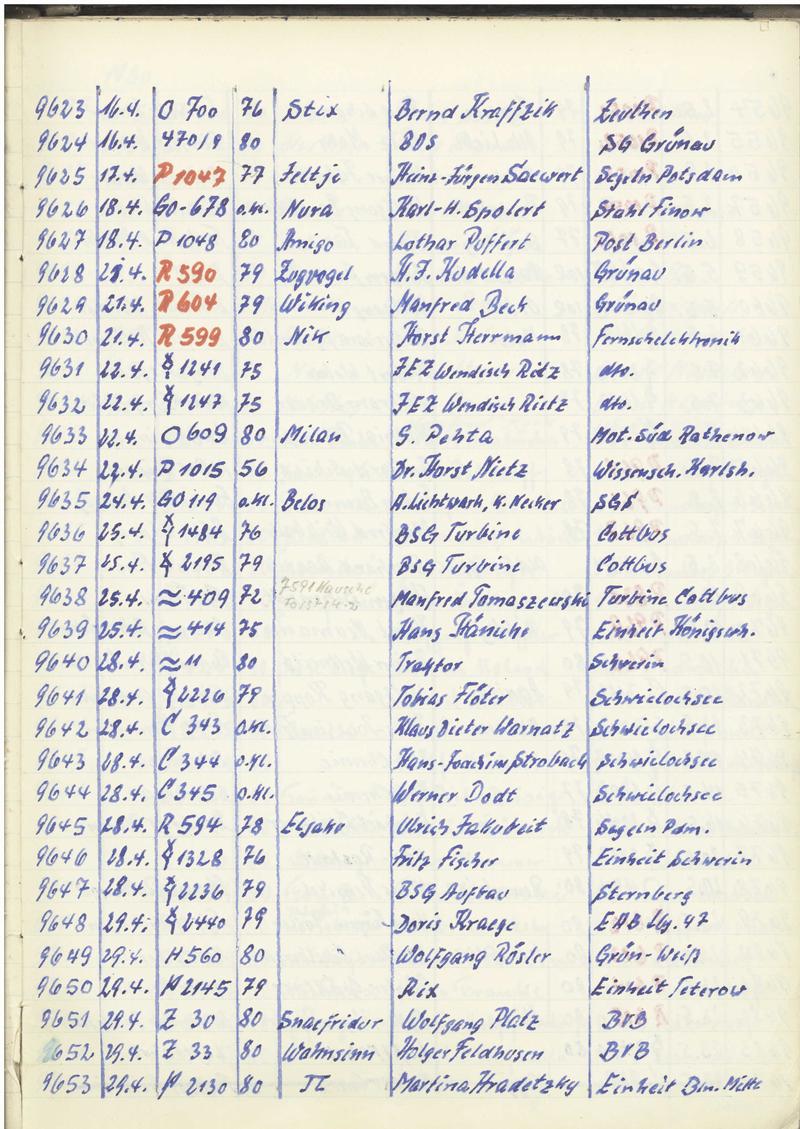 9623 16.4. O 700 76 Stix Bernd Kraffzik Zeuthen
9624 16.4. 47019 80 BDS SG Grünau
9625 17.4. P 1047 77 Feltje Heinz-Jürgen Saewert Segeln Potsdam
9626 18.4. GO-678 o.Kl. Nura Karl-H. Spolert Stahl Finow
9627 18.4. P 1048 80 Amigo Lothar Puffert Post Berlin
9628 21.4. R 590 79 Zugvogel H.J. Kudella Grünau
9629 21.4. R 604 79 Wiking Manfred Beck Grünau
9630 21.4. R 599 80 Nik Horst Herrmann Fernsehelektronik
9631 22.4. 1241 75 JEZ Wendisch Rietz dto.
9632 22.4. 1247 75 JEZ Wendisch Rietz dto.
9633 22.4. O 609 80 Milan G. Pehta Mot. Süd Rathenow
9634 22.4. P 1015 56 Dr. Horst Nietz Wissensch. Karlsh.
9635 24.4. GO 119 o.Kl. Belos A. Lichtwark, K. Necker SGS
9636 25.4. 1484 76 BSG Turbine Cottbus
9637 25.4. 2195 79 BSG Turbine Cottbus
7591
9638 25.4. ≈ 409 72 Manfred Tomaszewski Turbine Cottbus
9639 25.4. ≈ 414 75 Hans Einheit Königswh.
9640 28.4. ≈ 11 80 Traktor Schwerin
9641 28.4. 2226 79 Tobias Flöter Schwielochsee
9642 28.4. C 343 o.Kl. Klaus Dieter Warnatz Schwielochsee
9643 28.4. C 344 o.Kl. Hans-Joachim Strobach Schwielochsee
9644 28.4. C 345 o.Kl. Werner Dodt Schwielochsee
9645 28.4. R 594 78 Elsake Ulrich Jakubeit Segeln Pdm.
9646 28.4. 1328 76 Fritz Fischer Einheit Schwerin
9647 28.4. 2236 79 BSG Aufbau Sternberg
9648 29.4. 2440 79 Doris Kraege EAB Lbg. 47
9649 29.4. H 560 80 Wolfgang Rösler Grün-Weiß
9650 29.4. 2145 79 Rix Einheit Teterow
9651 29.4. Z 30 80 Snaefridur Wolfgang Platz BVB
9652 29.4. Z 33 80 Wahnsinn Holger Feldhusen BVB
9653 29.4. 2130 80 Martina Hradetzky Einheit Bln. Mitte